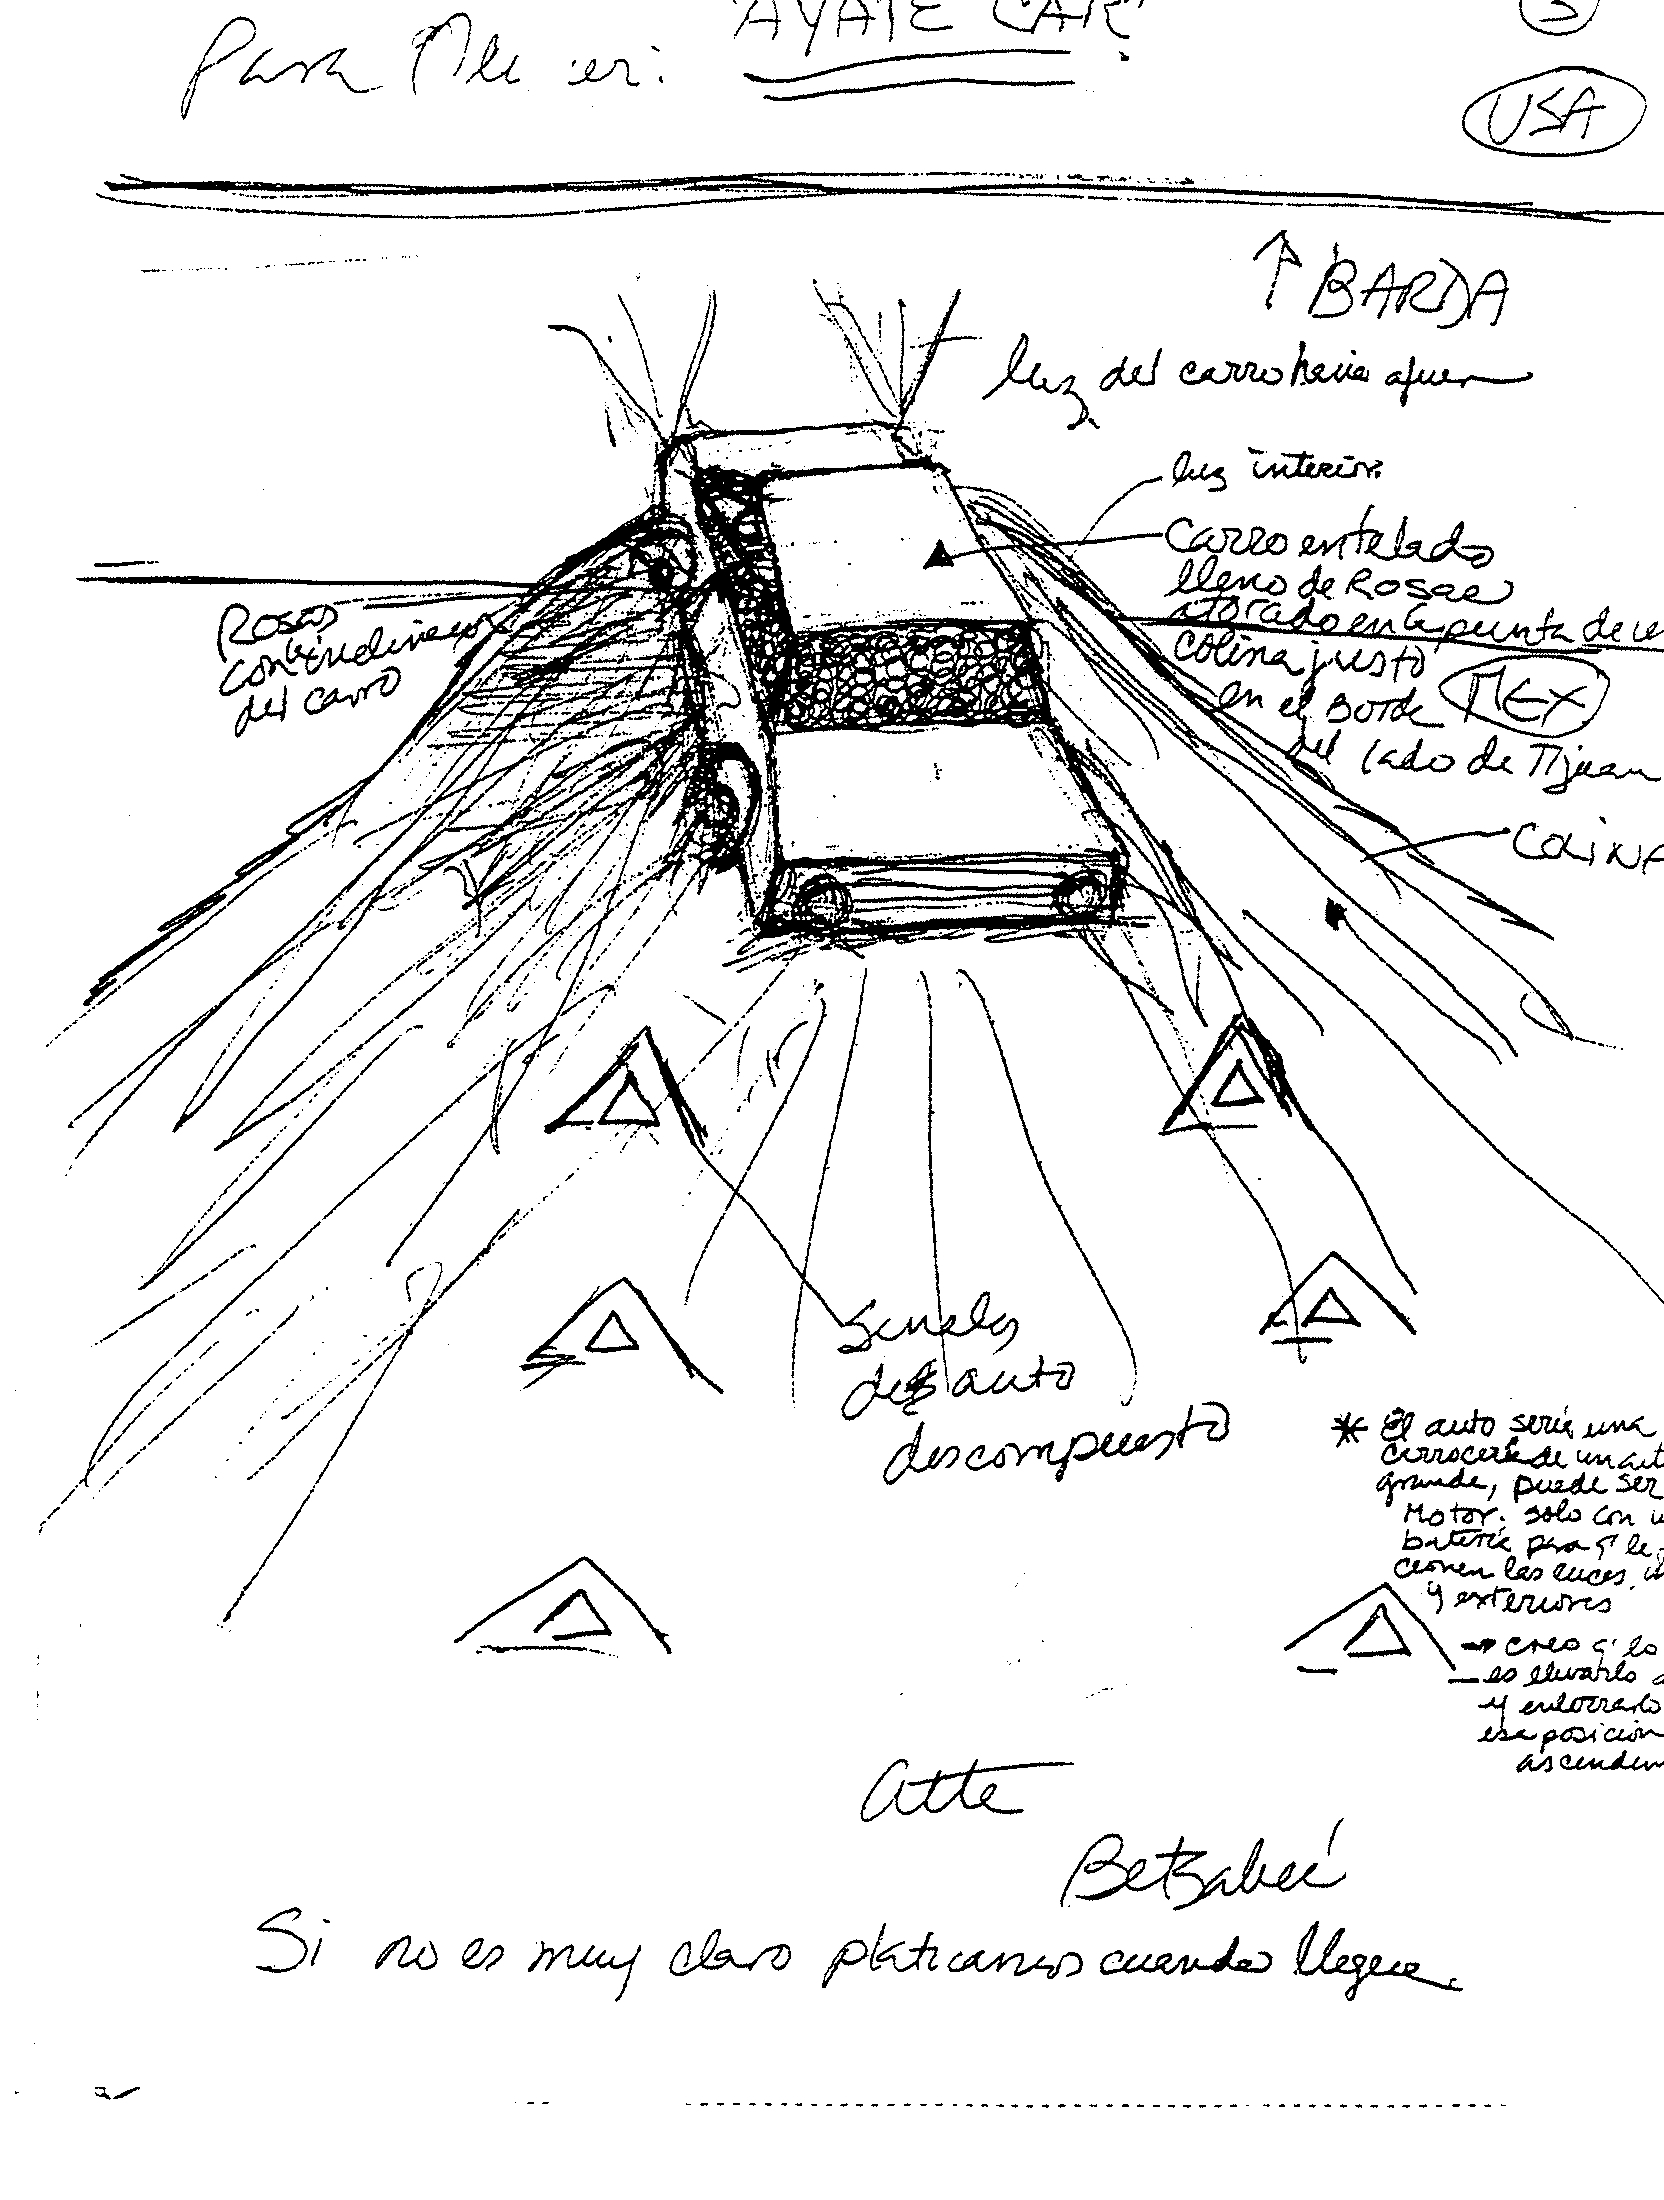 Para
"AYATE CAR"
USA
↑ BARDA
luz del carro hacia afuera
luz interior
Carro entelado
lleno de Rosas
atorado en la punta de
colina justo
en el Borde
MEX
del lado de Tijuan
Rosas
con
del carro
COLINA
Senales
de auto
descompuesto
* El auto seria una
carroceria de un aut
grande, puede ser
Motor. solo con u
bateria para q' le
cionen las luces
y exteriores
→ creo q' lo
es elevarlo a
y enlocarlo
esa posición
ascenden
Atte
Betzabeé
Si no es muy claro platicamos cuando llegue.